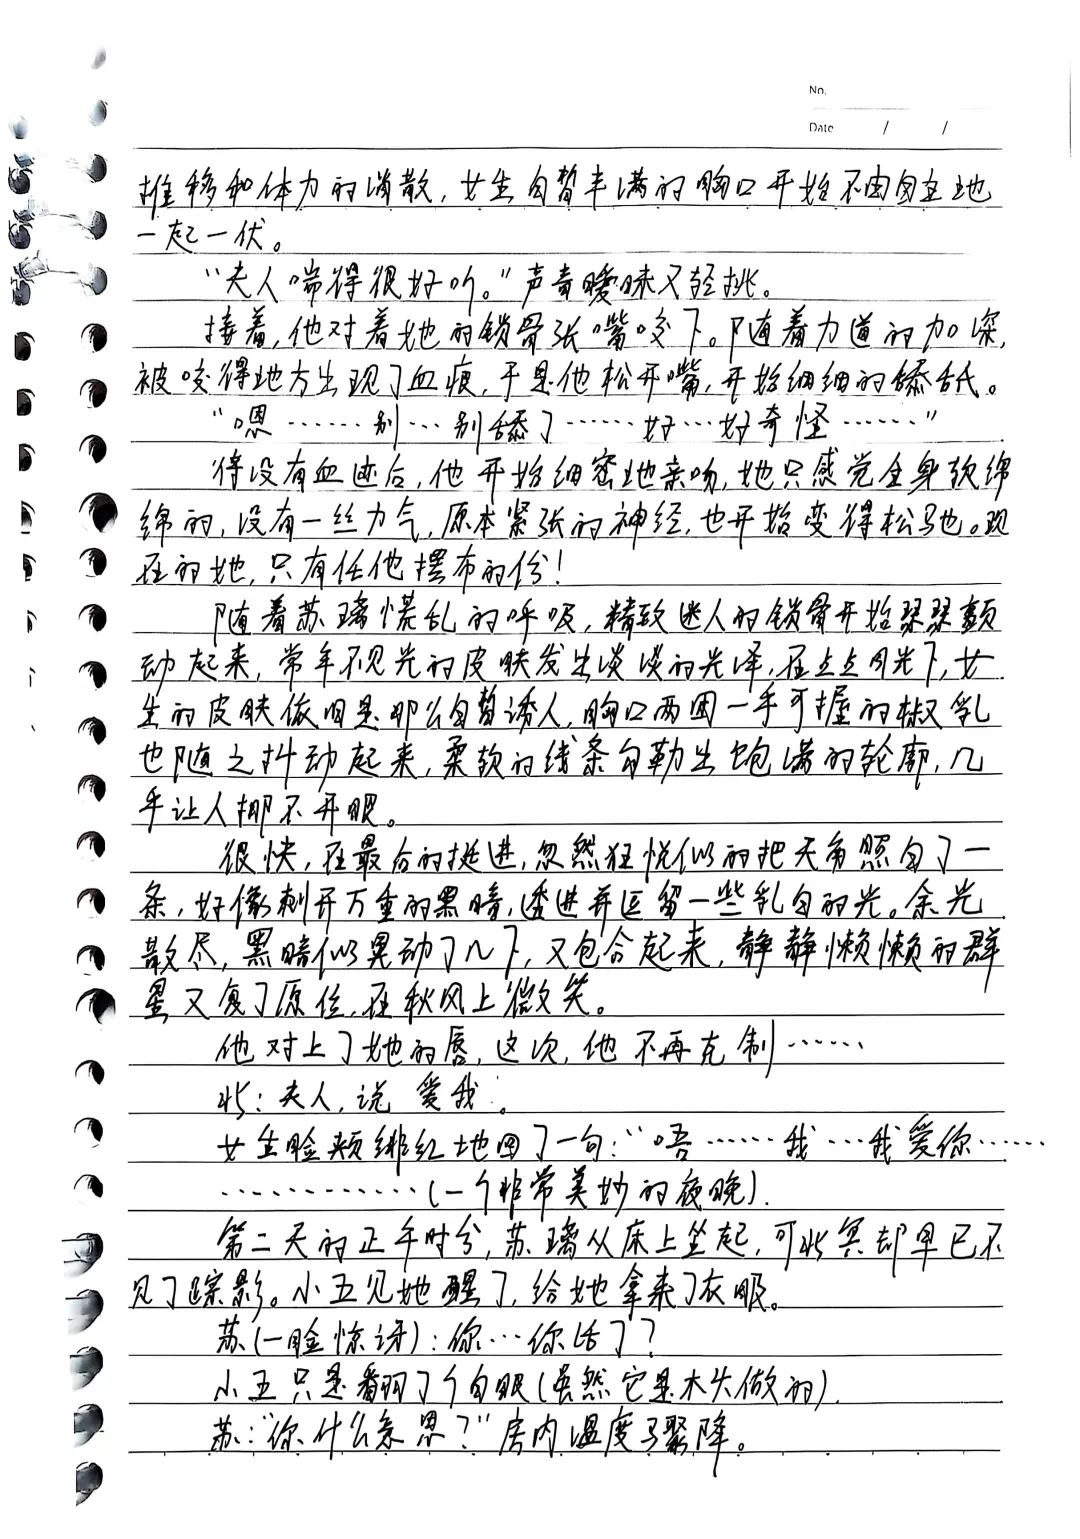 No.
Date / /
推移和体力的消散，女生白皙丰满的胸口开始不由自主地
一起一伏。
“夫人喘得很好听。”声音暧昧又轻挑。
接着，他对着她的锁骨张嘴咬下。随着力道的加深，
被咬得地方出现了血痕，于是他松开嘴，开始细细的舔舐。
“嗯……别…别舔了……好…好奇怪……”
待没有血迹后，他开始细密地亲吻，她只感觉全身软绵
绵的，没有一丝力气，原本紧张的神经，也开始变得松弛。现
在的她，只有任他摆布的份！
随着苏璃慌乱的呼吸，精致迷人的锁骨开始瑟瑟颤
动起来，常年不见光的皮肤发出淡淡的光泽，在点点月光下，女
生的皮肤依旧是那么白皙诱人，胸口两团一手可握的椒乳
也随之抖动起来，柔软的线条勾勒出饱满的轮廓，几
乎让人挪不开眼。
很快，在最后的挺进，忽然狂悦似的把天角照白了一
条，好像刺开万重的黑暗，透进并逗留一些乳白的光。余光
散尽，黑暗似晃动了几下，又包合起来，静静懒懒的群
星又复了原位，在秋风上微笑。
他对上了她的唇，这次，他不再克制……
北：夫人，说 爱我。
女生脸颊绯红地回了一句：“唔……我…我爱你……
…………（一个非常美妙的夜晚）.
第二天的正午时分，苏璃从床上坐起，可北冥却早已不
见了踪影。小五见她醒了，给她拿来了衣服。
苏（一脸惊讶）：你…你活了？
小五只是翻了个白眼（虽然它是木头做的）.
苏：“你什么意思？”房内温度骤降。